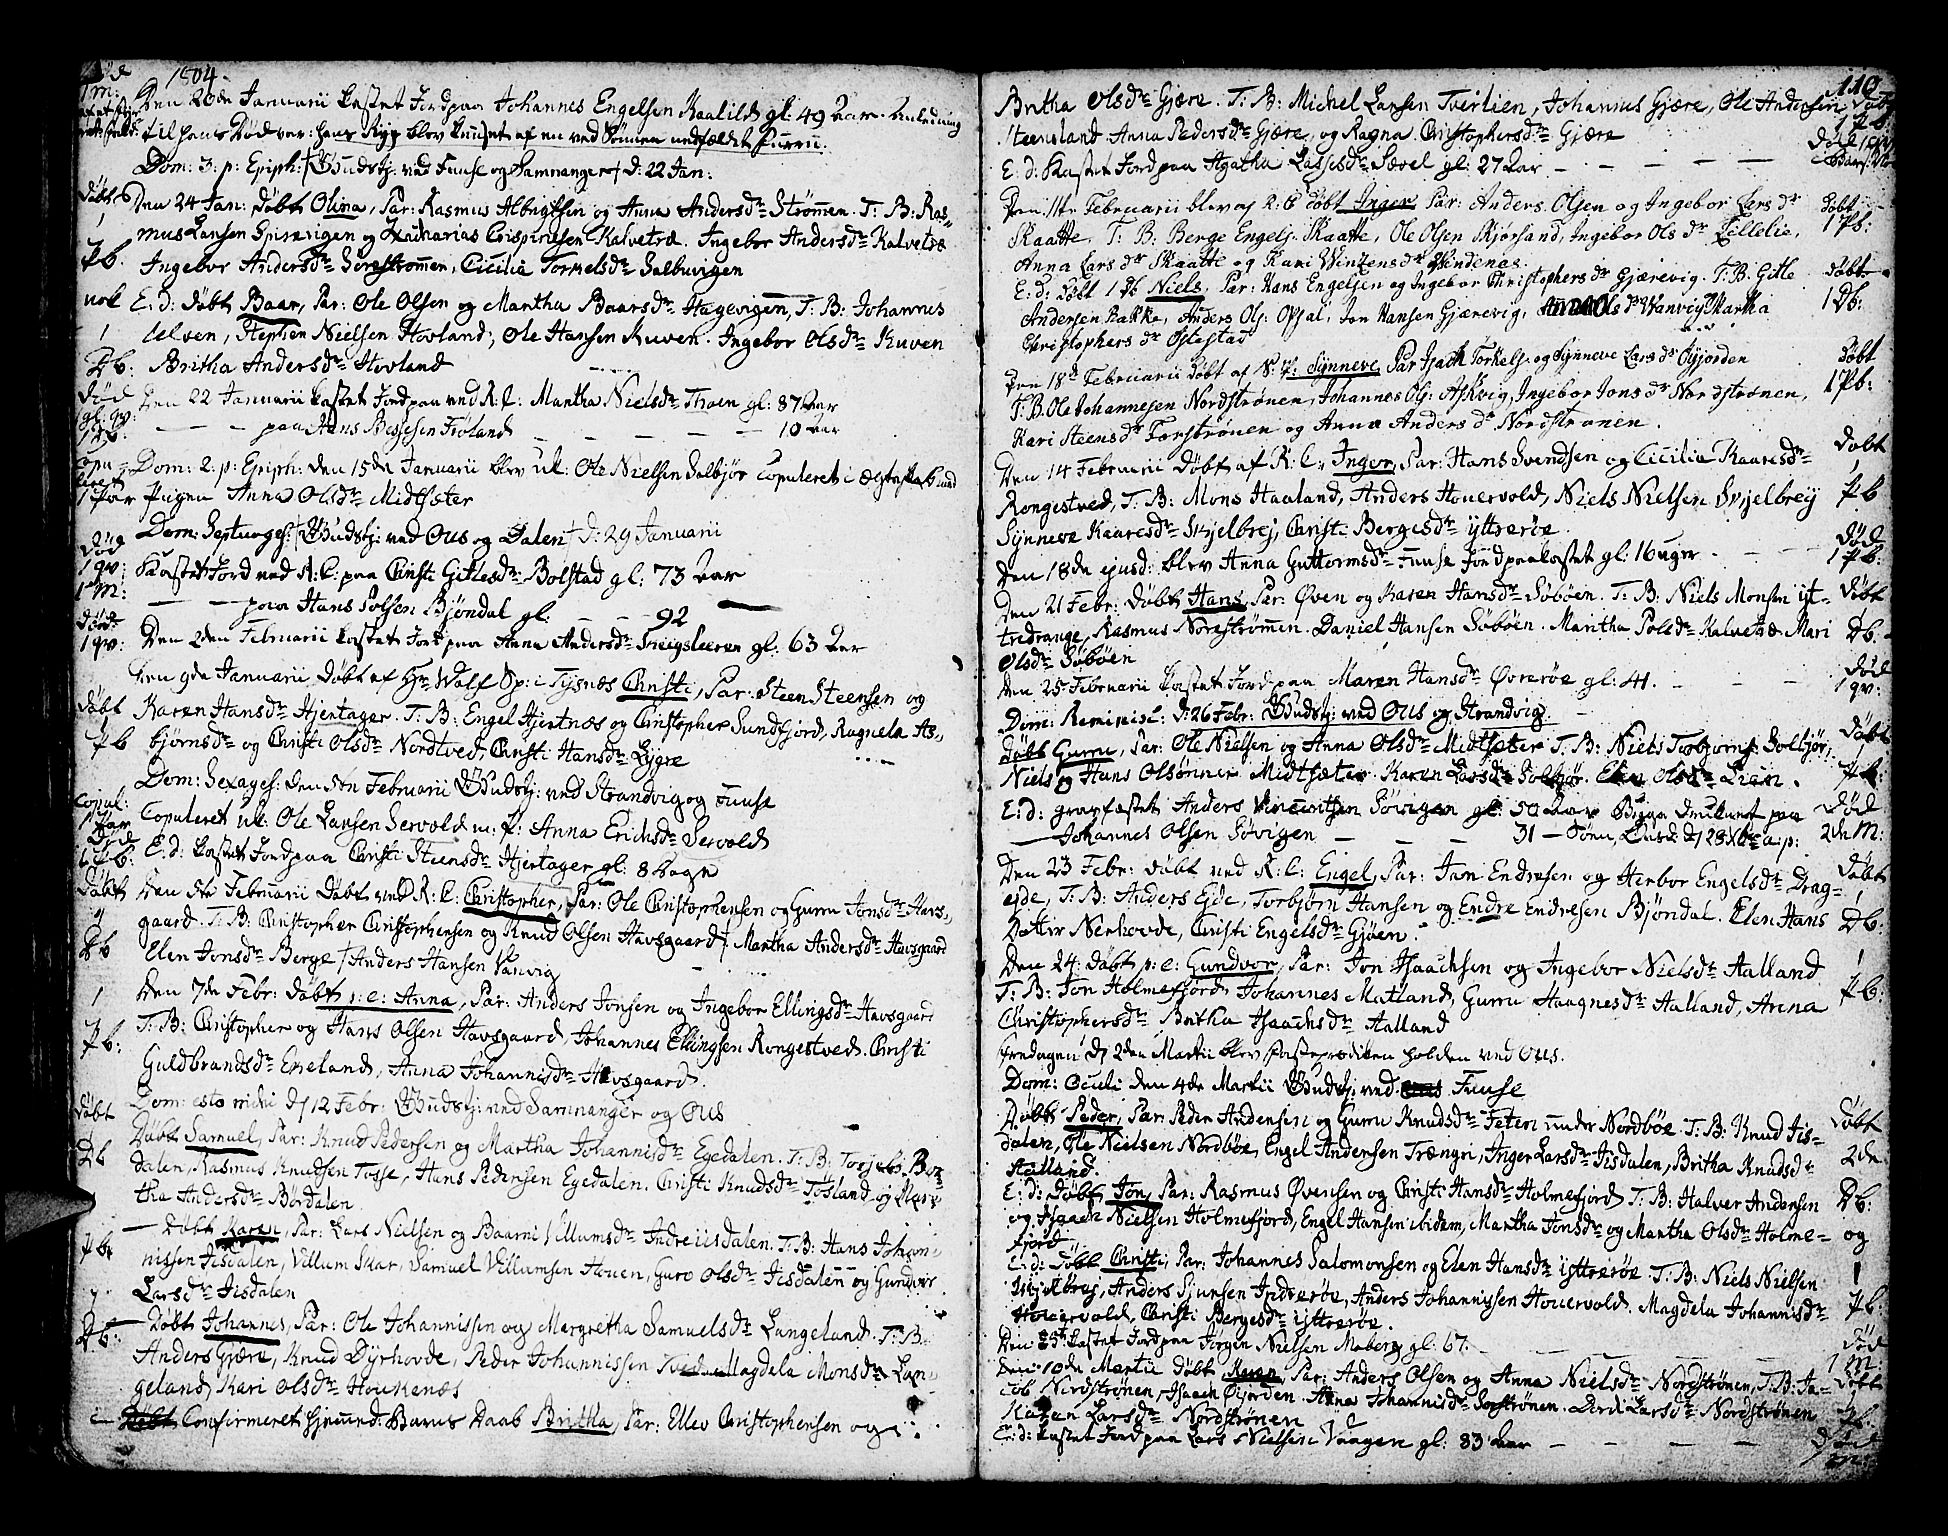 1804
Den 20de Januarii kastet Jord paa Johannes Engelsen Kaalild gl: 49 Aar. Anledning
til hans Død var: hans Ryg blev af en ved
Dom: 3. p: Epiph: Gudstj: ved Fuuse og Samnanger d: 22 Jan:
Døbt Den 24 Jan: Døbt Olina, Par: Rasmus Albrigtsen og Anna Andersdr Strømmen. T: B: Ras-
mus Larsen Spirevigen og Zacharias Crispinesen Kalvetræ. Ingebor Andersdr Kalvetræ
Pb. Ingebor Andersdr Sørestrømmen, Cicilia Torkelsdr Salbuvigen
nok E: d: Døbt Baar, Par: Ole Olsen og Martha Baarsdr Hegevigen, T: B: Johannes
1 Ulven, Stephen Nielsen Hovland, Ole Hansen Kuven. Ingebor Olsdr Kuven
Db: Britha Andersdr Hovland
Død Den 22 Januarii kastet Jord paa ved R: C: Martha Nielsdr Thoen gl: 87 Aar
— — paa Hans Bessesen Frøland — — — — 10 Aar
Dom: 2: p: Epiph: den 15de Januarii blev uk: Ole Nielsen Salbjør Copuleret i
1 Par Pigen Anna Olsdr Midtsæter
Dom: Septuages: Gudstj: ved Ous og Dalen d: 29 Januarii
Død
1 qv: Kastet Jord ved R: C: paa Christi Gitlesdr Bolstad gl: 73 Aar
1 M: — — paa Hans Polsen Bjøndal gl: — — 92
Død
1 qv: Den 2den Februarii kastet Jord paa Anna Andersdr gl: 63 Aar
Den 9de Januarii Døbt af Hr Wolf Sp: i Tysnes Christi, Par: Steen Steensen og
Døbt Karen Hansdr Hjertager. T: B: Engel Hjertnes og Christopher Sundfjord, Ragnela As-
Pb bjørnsdr og Christi Olsdr Nordtved, Christi Hansdr Lygre
Dom: Sexages: den 5te Februarii Gudstj: ved Strandvig og Fuuse
Copul:
1 Par Copuleret uk: Ole Larsen Sævold m: p: Anna Erichsdr Sævold
Død
1 Pb: E: d: kastet Jord paa Christi Steensdr Hjertager gl: 8 Dage
Døbt Den 5te Februarii Døbt ved R: C: Christopher, Par: Ole Christophersen og Guru Jonsdr Havs-
gaard. T: B: Christopher Christophersen og Knud Olsen Havsgaard, Martha Andersdr Havsgaard
Db Elen Jonsdr Berge, Anders Hansen Vanvig
1 Den 7de Febr: Døbt p: e: Anna, Par: Anders Jonsen og Ingebor Ellingsdr Havsgaard
Pb: T: B: Christopher og Hans Olsen Havsgaard, Johannes Ellingsen Rongestved. Christi
Guldbrandsdr Eneland, Anna Johannisdr Havsgaard.
Dom: esto mihi d: 12 Febr: Gudstj: ved Samnanger og Ous
Døbt Døbt Samuel, Par: Knud Pedersen og Martha Johannisdr Egedalen. T: B: Torjels Bør-
Db dalen, Rasmus Knudsen Tosse, Hans Pedersen Egedalen. Christi Knudsdr Tøsland og Mar-
tha Andersdr Børdalen
— Døbt Karen, Par: Lars Nielsen og Baarni Villumsdr Indre iisdalen. T: B: Hans Johan-
Pb: nissen Jisdalen, Villum Skar, Samuel Villumsen Houen, Guro Olsdr Jisdalen og Gundvor
Larsdr Jisdalen
— Døbt Johannes, Par: Ole Johannissen og Margretha Samuelsdr Langeland. T: B:
Db: Anders Gjære, Knud Dyrhovde, Peder Johannissen Tved Magdela Monsdr Lan-
geland, Kari Olsdr Houkenæs
Døbt Confirmeret hjemmed: Barns Daab Britha, Par: Ellev Christophersen og
110
Britha Olsdr Gjære. T: B: Michel Larsen Tverlien, Johannes Gjære, Ole Andersen Døbt
Steensland Anna Pedersdr Gjære, og Ragna Christophersdr Gjære 1 Pb:
E: d: Kastet Jord paa Agatha Lassesdr Sævel gl: 27 Aar — — — — Død 1 qv:
Den 11te Februarii blev af R: C Døbt Inger, Par: Anders Olsen og Ingebor Larsdr Døbt
Skaatte, T: B: Berge Engels. Skaatte, Ole Olsen Skjørsand, Ingebor Olsdr Lillelie, 1 Pb:
Anna Larsdr Skaatte og Kari Vinzensdr Vindenæs.
E: d: Døbt 1 Db Niels, Par: Hans Engelsen og Ingebor Christophersdr Gjærevig. T: B: Gitle Døbt
Andersen Bakke, Anders Ols: Opsal, Jon Hansen Gjærevig, Anna Olsdr Vanvig Martha 1 Db:
Christophersdr Østestad
Den 18de Februarii Døbt af S: P: Synneve, Par Isach Torkels. og Synneve Larsdr Øyjorden Døbt
T: B. Ole Johannesen Nordstrønen, Johannes Ols: Askvig, Ingebor Jonsdr Nordstrønen, 1 Pb:
Kari Steensdr Forstrønen og Anna Andersdr Nordstrønen.
Den 14 Februarii Døbt af R: C: Inger, Par: Hans Svendsen og Cicilia Kaaresdr Døbt
Rongestved, T: B: Mons Haaland, Anders Houervold, Niels Nielsen Skjelbrey 1 Pb
Synneve Kaaresdr Skjelbrej, Christi Bergesdr Yttrerøe.
Den 18de ejusd: blev Anna Guttormsdr Fuuse Jord paakastet gl: 16 uger — — — Død 1 Pb:
Den 21 Febr: Døbt Hans, Par: Øven og Karen Hansdr Søbøen. T: B: Niels Monsen yt- Døbt
tredrange, Rasmus Norestrømen. Daniel Hansen Søbøen. Maritha Polsdr Kalvetræ Mari Db.
Olsdr Søbøen
Den 25 Februarii kastet Jord paa Maren Hansdr Øvrerøe gl: 41. — — Død 1 qv:
Dom: Reminisc: d: 26 Febr: Gudstj: ved Ous og Strandvig.
Døbt Guru, Par: Ole Nielsen og Anna Olsdr Midtsæter. T: B: Niels Torbjørns: Solbjør, Døbt
Niels og Hans Olsønner Midtsæter. Karen Larsdr Solbjør. Elen Olsdr Lien. 1 Pb:
E: d: gravfæstet Anders Vincentsen Søvigen gl: 50 Aar Død
— Johannes Olsen Søvigen — — — 31 — d: 28 Xbr: a: p: 2de M:
Den 23 Febr: Døbt ved R: C: Engel, Par: Jan Endresen og Herbor Engelsdr Drag- Døbt
ejde, T: B: Anders Ejde, Torbjørn Hansen og Endre Endresen Bjøndal. Elen Hans 1 Db:
Dotter Nerhovde, Christi Engelsdr Gjøen.
Den 24: Døbt p: e: Gundvor, Par: Jon Isaachsen og Ingebor Nielsdr Aalland 1
T: B: Jon Holmefjord, Johannes Matland, Guru Haagnesdr Aalland, Anna Pb:
Christophersdr Britha Isaachsdr Aalland
Fredagen d: 2den Martii blev Fasteprædiken holden ved Ous.
Dom: Oculi den 4de Martii Gudstj: ved Ous Fuuse
Døbt Peder, Par: Peder Andersen og Guru Knudsdr Feteri under Nordbøe. T: B: Knud Jis- Døbt
dalen, Ole Nielsen Nordbøe, Engel Andersen Trængri, Inger Larsdr Jisdalen, Britha Knudsdr 2de
Aalland.
E: d: Døbt Jon, Par: Rasmus Øvensen og Christi Hansdr Holmefjord T: B: Halver Andersen Db:
og Isaach Nielsen Holmefjord, Engel Hansen ibidem, Martha Jonsdr og Martha Olsdr Holme- og
fjord.
E: d: Døbt Christi, Par: Johannes Salomonsen og Elen Hansdr Yttrerøe. T: B: Niels Nielsen 1
Skjelbrej, Anders Sjursen Indrerøe, Anders Johannissen Houervold. Magdela Johannisdr Pb:
Houervold, Christi Bergesdr Yttrerøe.
Den kastet Jord paa Jørgen Nielsen Moberg gl: 67. — — — Død 1 M:
Den 10de Martii Døbt Karen, Par: Anders Olsen og Anna Nielsdr Nordstrønen, T. B: Ja- Døbt
cob Nordstrønen, Isaach Øijorden. Anna Johannisdr Sørstrønen. Larsdr Nordstrønen 1
Karen Larsdr Nordstrønen Pb.
E: d: kastet Jord paa Lars Nielsen Vaagen gl: 83 Aar — — — — Død